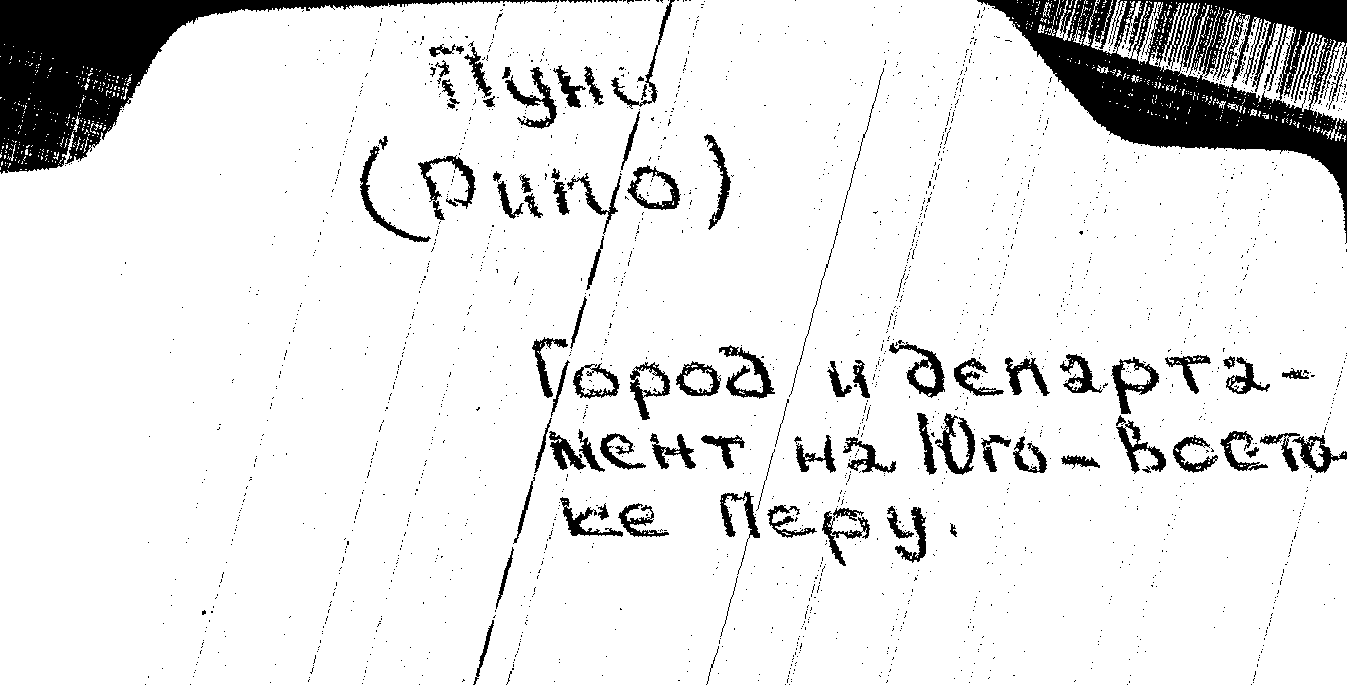 Пуно
(Puno)
Город и департа-
мент на Юго-Восто-
ке Перу.